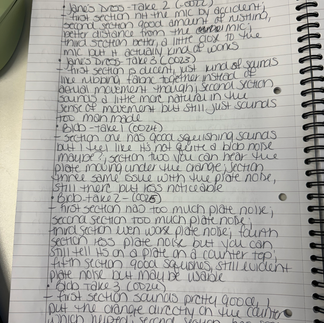 • Jane's Dress - Take 2 (0022)
- first section hit the mic by accident,
second section good amount of rustling,
better distance from the mic,
third section better, a little close to the
mic but it actually kind of works
• Jane's Dress - Take 3 (0023)
- first section decent, just kind of sounds
like rubbing fabric together instead of
actual movement though, second section
sounds a little more natural in the
sense of movement but still just sounds
too man made
• Blob - Take 1 (0024)
- Section one has good squishing sounds
but I feel like its not quite a blob noise
maybe?, section two you can hear the
plate moving under the orange, section
three same issue with the plate noise,
still there but less noticeable
• Blob - Take 2 - (0025)
- first section has too much plate noise,
second section too much plate noise,
third section even worse plate noise, fourth
section less plate noise but you can
still tell its on a plate on a counter top,
fifth section good squishes, still evident
plate noise but may be usable
• Blob Take 3 (0026)
- first section sounds pretty good, I
put the orange directly on the counter
which helped, second